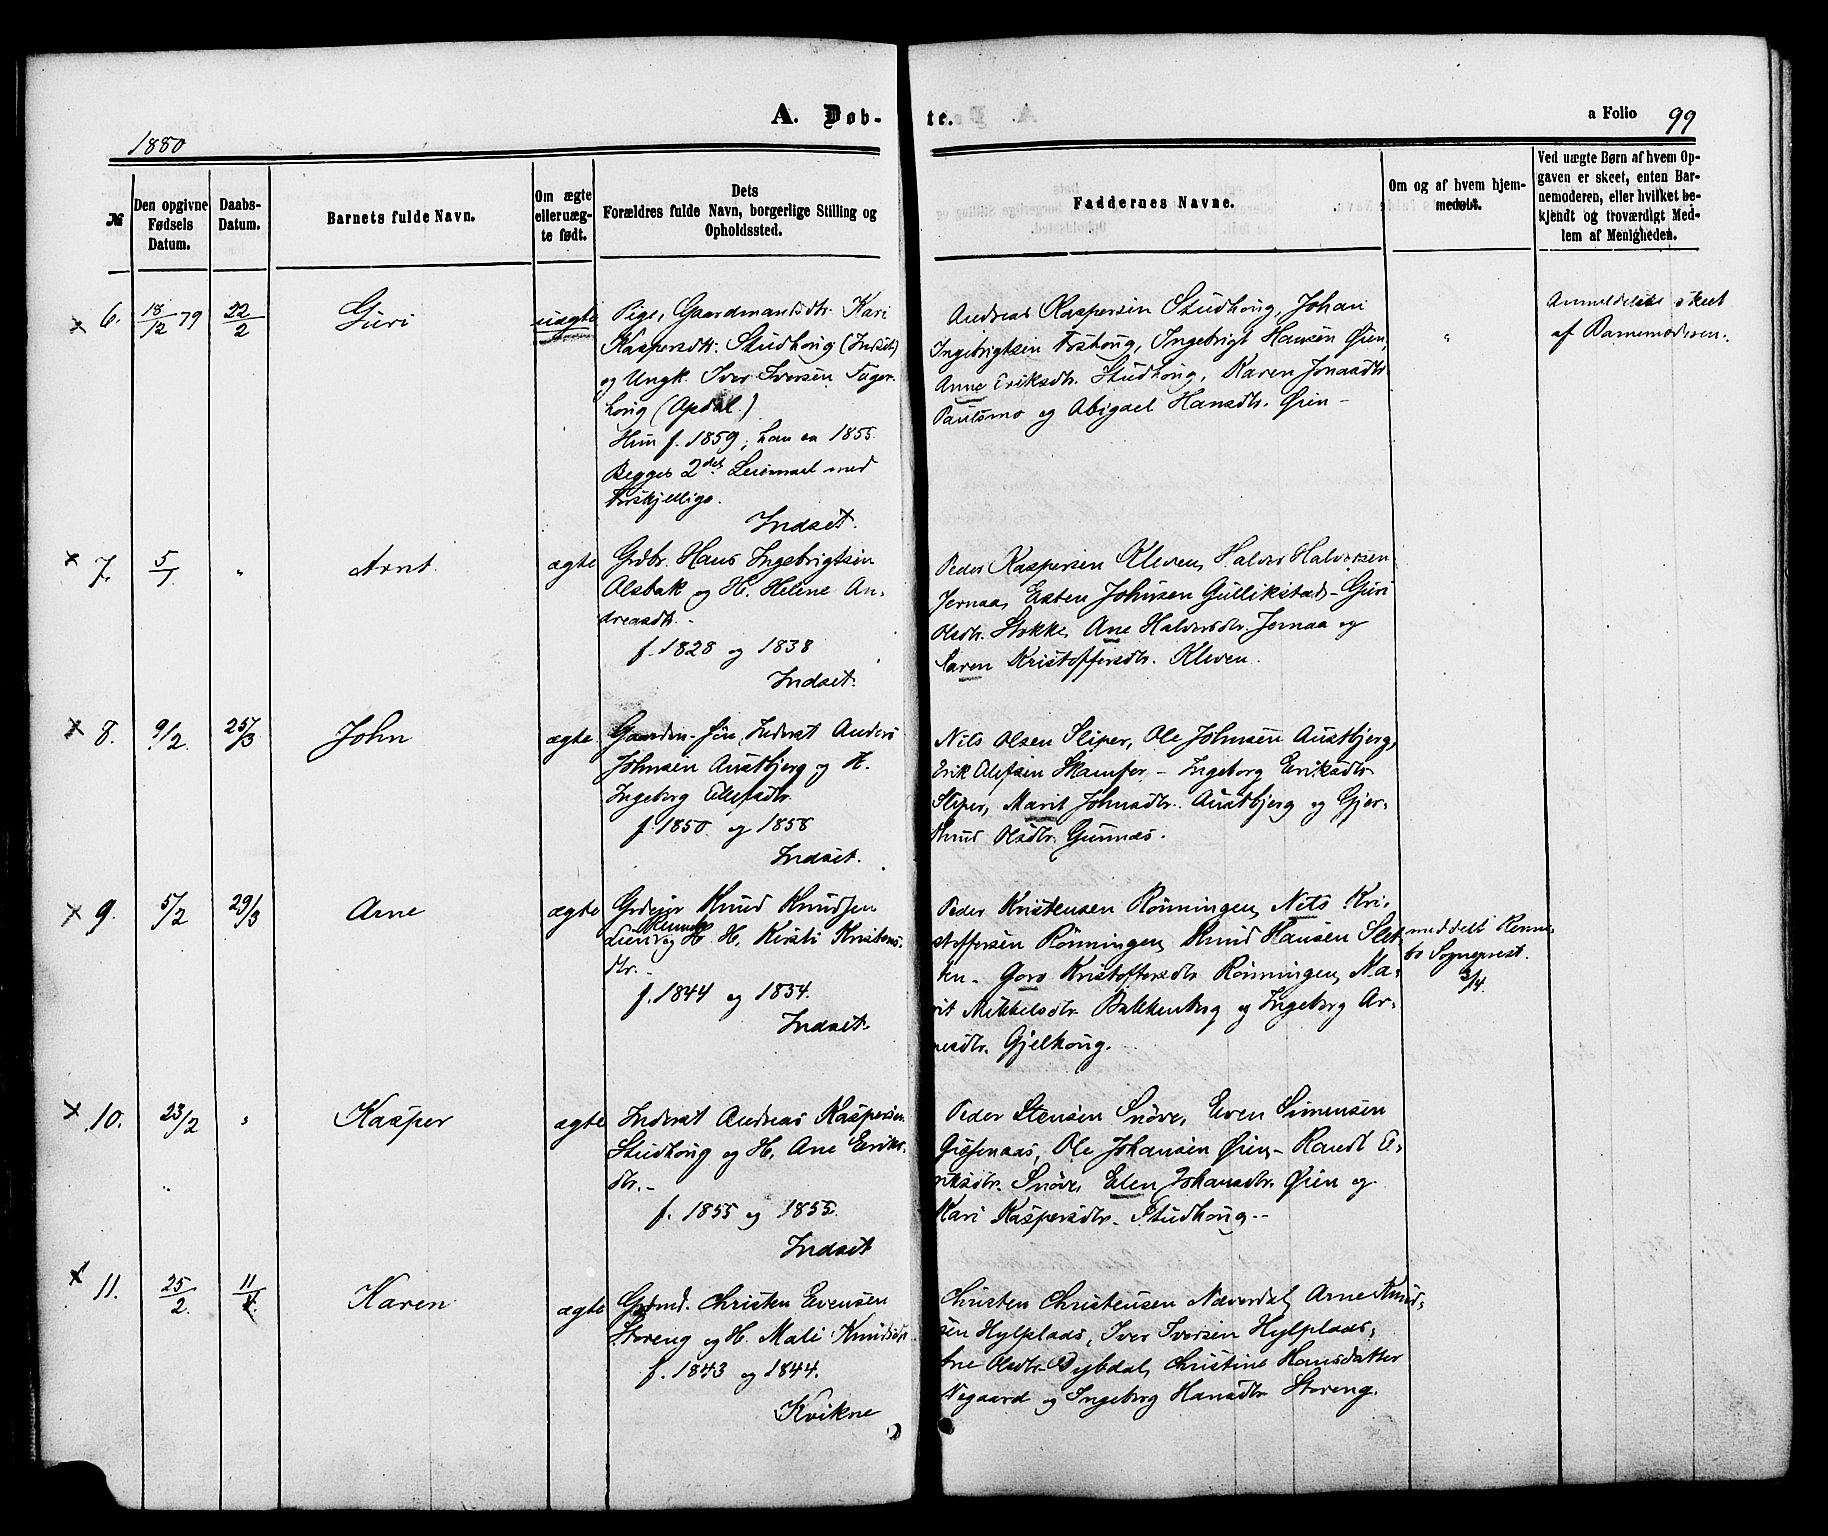 1880
A. Døb-
te.
a Folio 99
№
Den opgivne
Fødsels
Datum.
Daabs-
Datum.
Barnets fulde Navn.
Om ægte
eller uæg-
te født.
Dets
Forældres fulde Navn, borgerlige Stilling og
Opholdssted.
Faddernes Navne.
Om og af hvem hjem-
medøbt.
Ved uægte Børn af hvem Op-
gaven er skeet, enten Bar-
nemoderen, eller hvilket be-
kjendt og troværdigt Med-
lem af Menigheden.
× 6. 18/12 79 22/2 Guri uægte
Pige, Gaardmandsdtr. Kari
Kaspersdtr. Studhoug (Indset)
og Ungk. Iver Iversen
houg (Opdal.)
Hun f. 1859, han ca 1855.
Begges 2det Leiermaal med
Forskjellige.
Indset.
Andreas Kaspersen Studhoug, Johan
Ingebrigtsen Foshoug, Ingebrigt Hansen Øien,
Anne Eriksdtr. Studhoug, Karen Jonasdtr.
Paulsmo og Abigael Hansdtr. Øien -
"
Anmeldelse skeet
af Barnemoderen.
× 7. 5/1 " Arnt ægte
Grdbr. Hans Ingebrigtsen
Olsbak og H. Helene An-
dreasdtr. -
f. 1828 og 1838
Indset.
Peder Kaspersen Kleven, Halvor Halvorsen
Jernaa, Esten Johnsen Gullikstad - Guri
Olsdtr. Stokke, Ane Halvorsdtr. Jernaa og
Karen Kristoffersdtr. Kleven.
× 8. 9/2 25/3 John ægte
Inderst Anders
Johnsen Austbjerg og H.
Ingeborg Ellefsdtr.
f. 1850 og 1858
Indset.
Nils Olsen Sliper, Ole Johnsen Austbjerg,
Erik Olefsen Skamfer - Ingeborg Eriksdtr.
Sliper, Marit Johnsdtr. Austbjerg og Gjer-
thrud Olsdtr. Gunnes.
× 9. 5/2 29/3 Arne ægte
Grdejer Knud Knudsen
og H. H. Kirsti Kristens-
dtr. -
f. 1844 og 1834.
Indset.
Peder Kristensen Rønningen, Nils Kri-
stoffersen Rønningen, Knud Hansen Slet-
ten - Goro Kristoffersdtr. Rønningen, Ma-
rit Mikkelsdtr. Bakkenberg og Ingeborg Ar-
nesdtr. Gjelhoug.
meddelt Renne-
bo Sogneprest.
3/4.
× 10. 23/2 " Kasper ægte
Inderst Andreas Kaspersen
Studhoug og H. Ane Eriks-
dtr. -
f. 1855 og 1855.
Indset
Peder Stensen Snøve, Even Simensen
Ole Johansen Øien - Randi E-
riksdtr. Snøve, Elen Johansdtr. Øien og
Kari Kaspersdtr. Studhoug -
× 11. 25/2 11/4. Karen ægte
Grdmd. Christen Evensen
Storeng og H. Mali Knudsdtr.
f. 1843 og 1844.
Kvikne
Christen Christensen Næverdal, Arne Knud-
sen Hylplads, Iver Iversen Hylplads,
Ane Olsdtr. Dybdal, Christine Hansdatter
Vegaard og Ingeborg Hansdtr. Storeng.